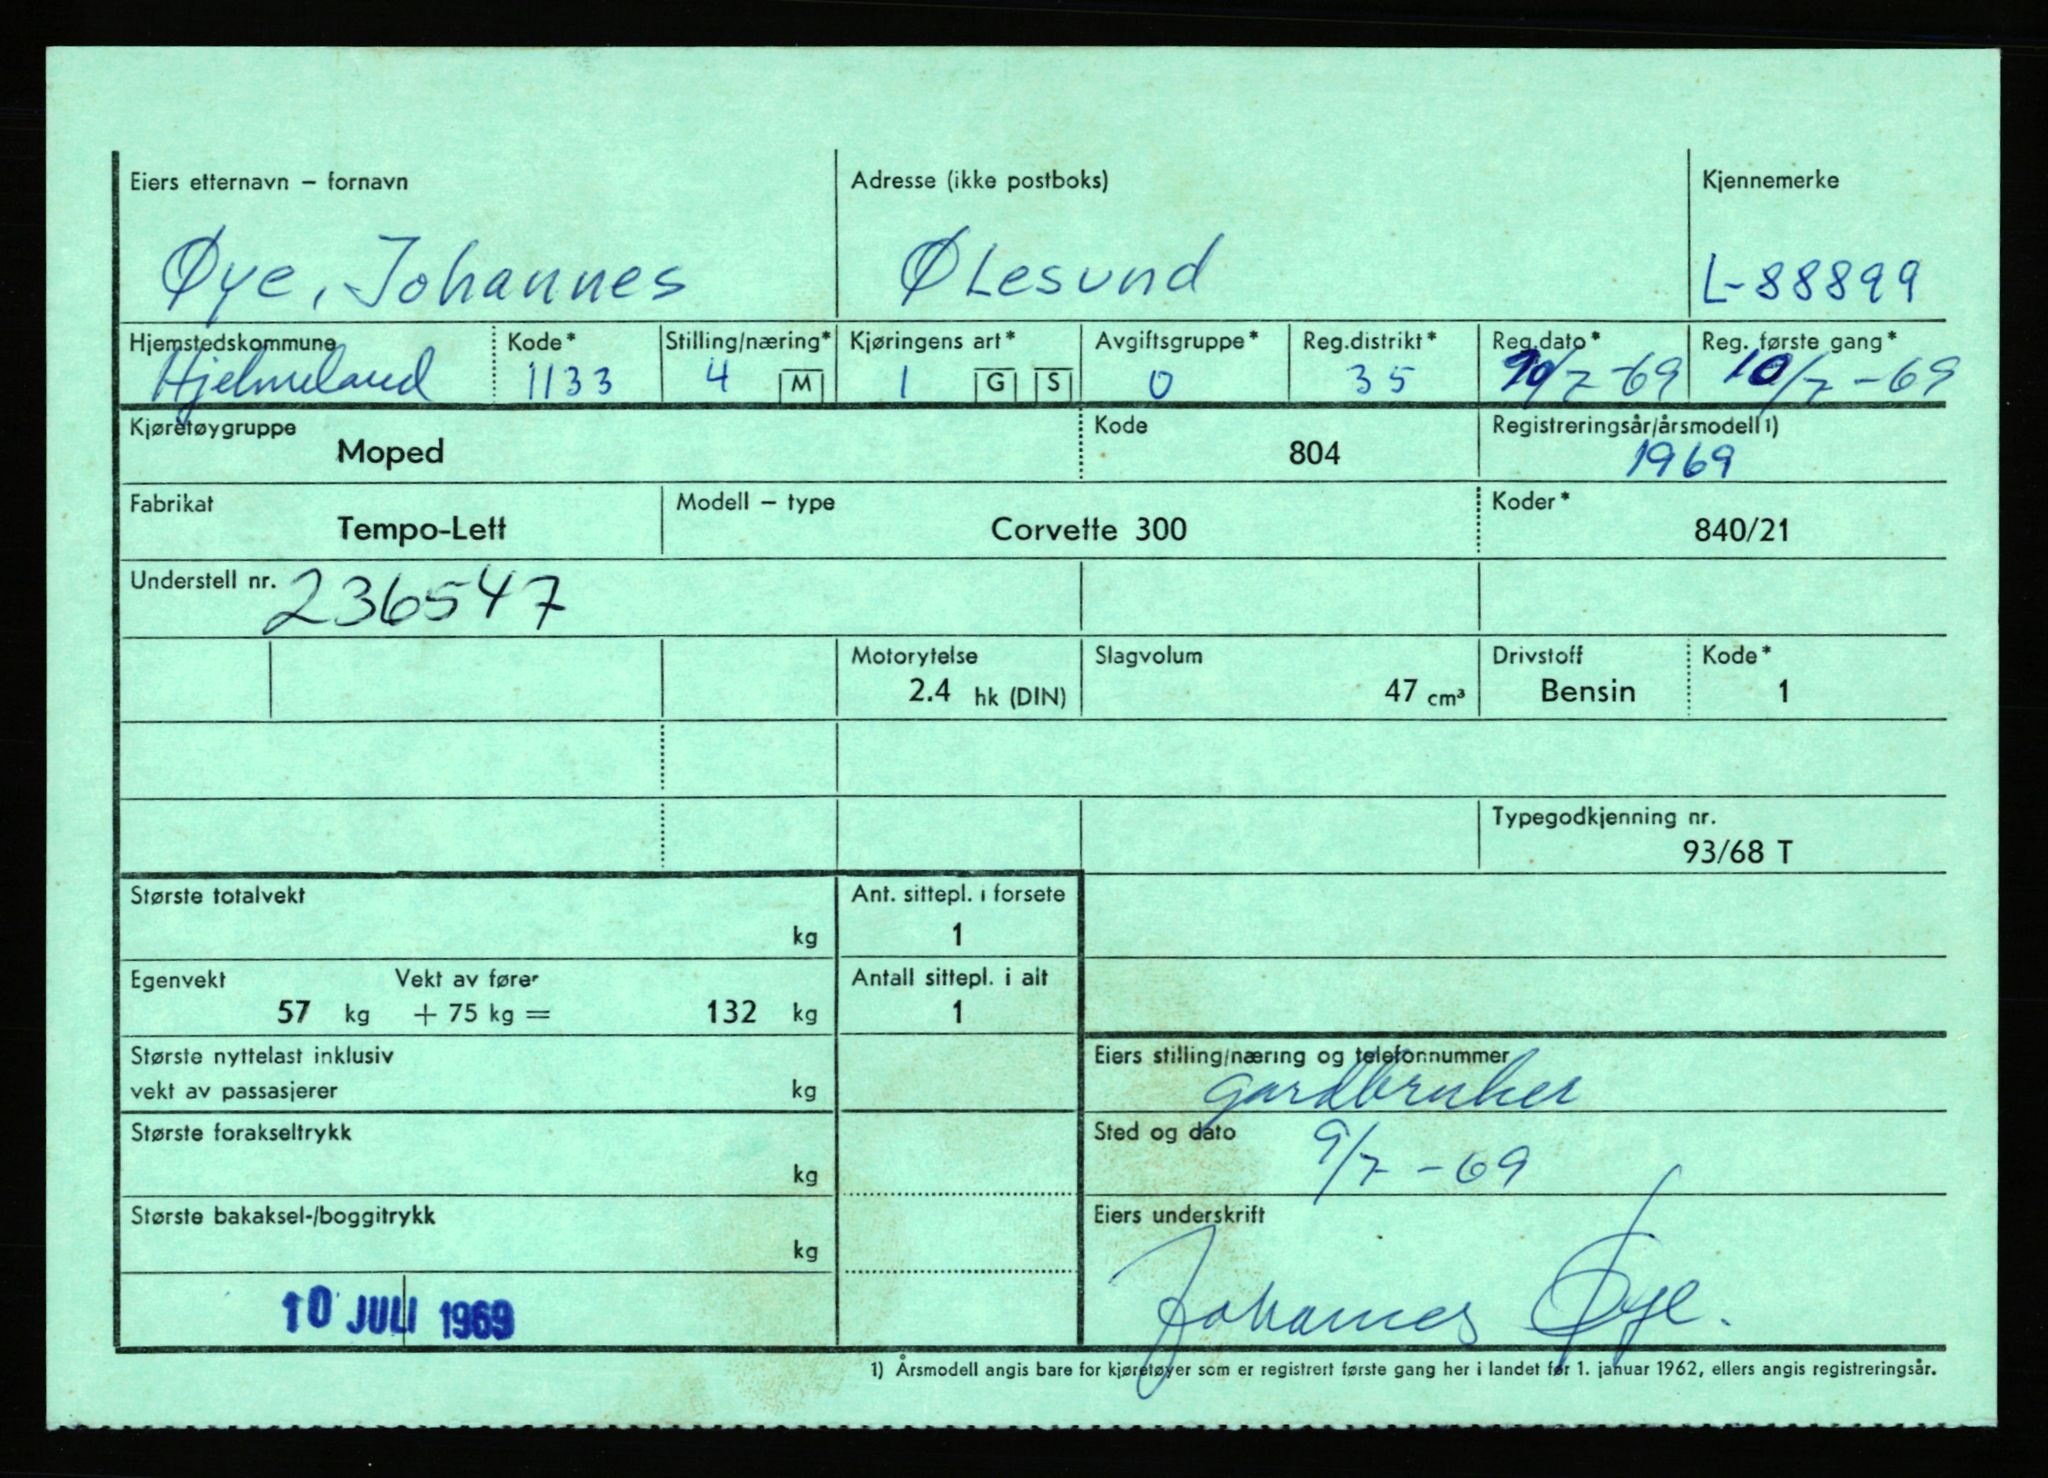 Eiers etternavn – fornavn Adresse (ikke postboks) Kjennemerke
Øye, Johannes ØLesund L-88899
Hjemstedskommune Kode* Stilling/næring* Kjøringens art* Avgiftsgruppe* Reg.distrikt* Reg.dato* Reg. første gang*
Hjelmeland 1133 4 M 1 G S 0 35 10/7-69 10/7-69
Kjøretøygruppe Kode Registreringsår/årsmodell 1)
Moped 804 1969
Fabrikat Modell – type Koder*
Tempo-Lett Corvette 300 840/21
Understell nr. 236547
Motorytelse Slagvolum Drivstoff Kode*
2.4 hk (DIN) 47 cm³ Bensin 1
Typegodkjenning nr.
93/68 T
Største totalvekt Ant. sittepl. i forsete
kg 1
Egenvekt Vekt av fører Antall sittepl. i alt
57 kg + 75 kg = 132 kg 1
Største nyttelast inklusiv Eiers stilling/næring og telefonnummer
vekt av passasjerer kg gardbruker
Største forakseltrykk Sted og dato
kg 9/7-69
Største bakaksel-/boggitrykk Eiers underskrift
kg
10 JULI 1969 Johannes Øye.
1) Årsmodell angis bare for kjøretøyer som er registrert første gang her i landet før 1. januar 1962, ellers angis registreringsår.